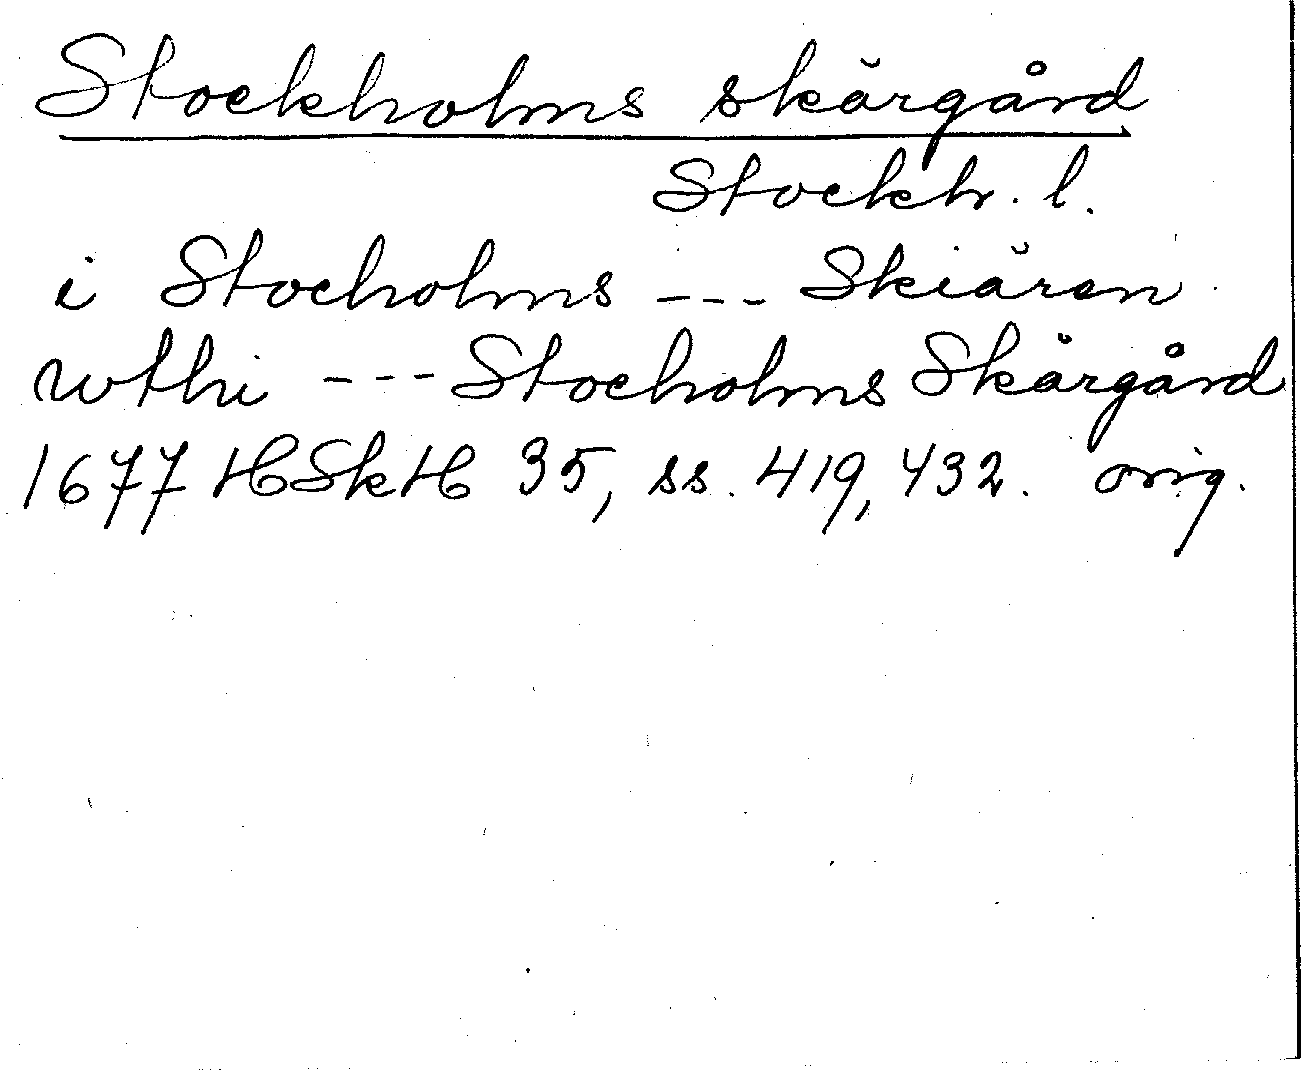 Stockholms skärgård
Stockh. l.
i Stocholms --- Skiären
wthi --- Stocholms Skärgård
1677 HSkH 35, ss. 419, 432. orig.